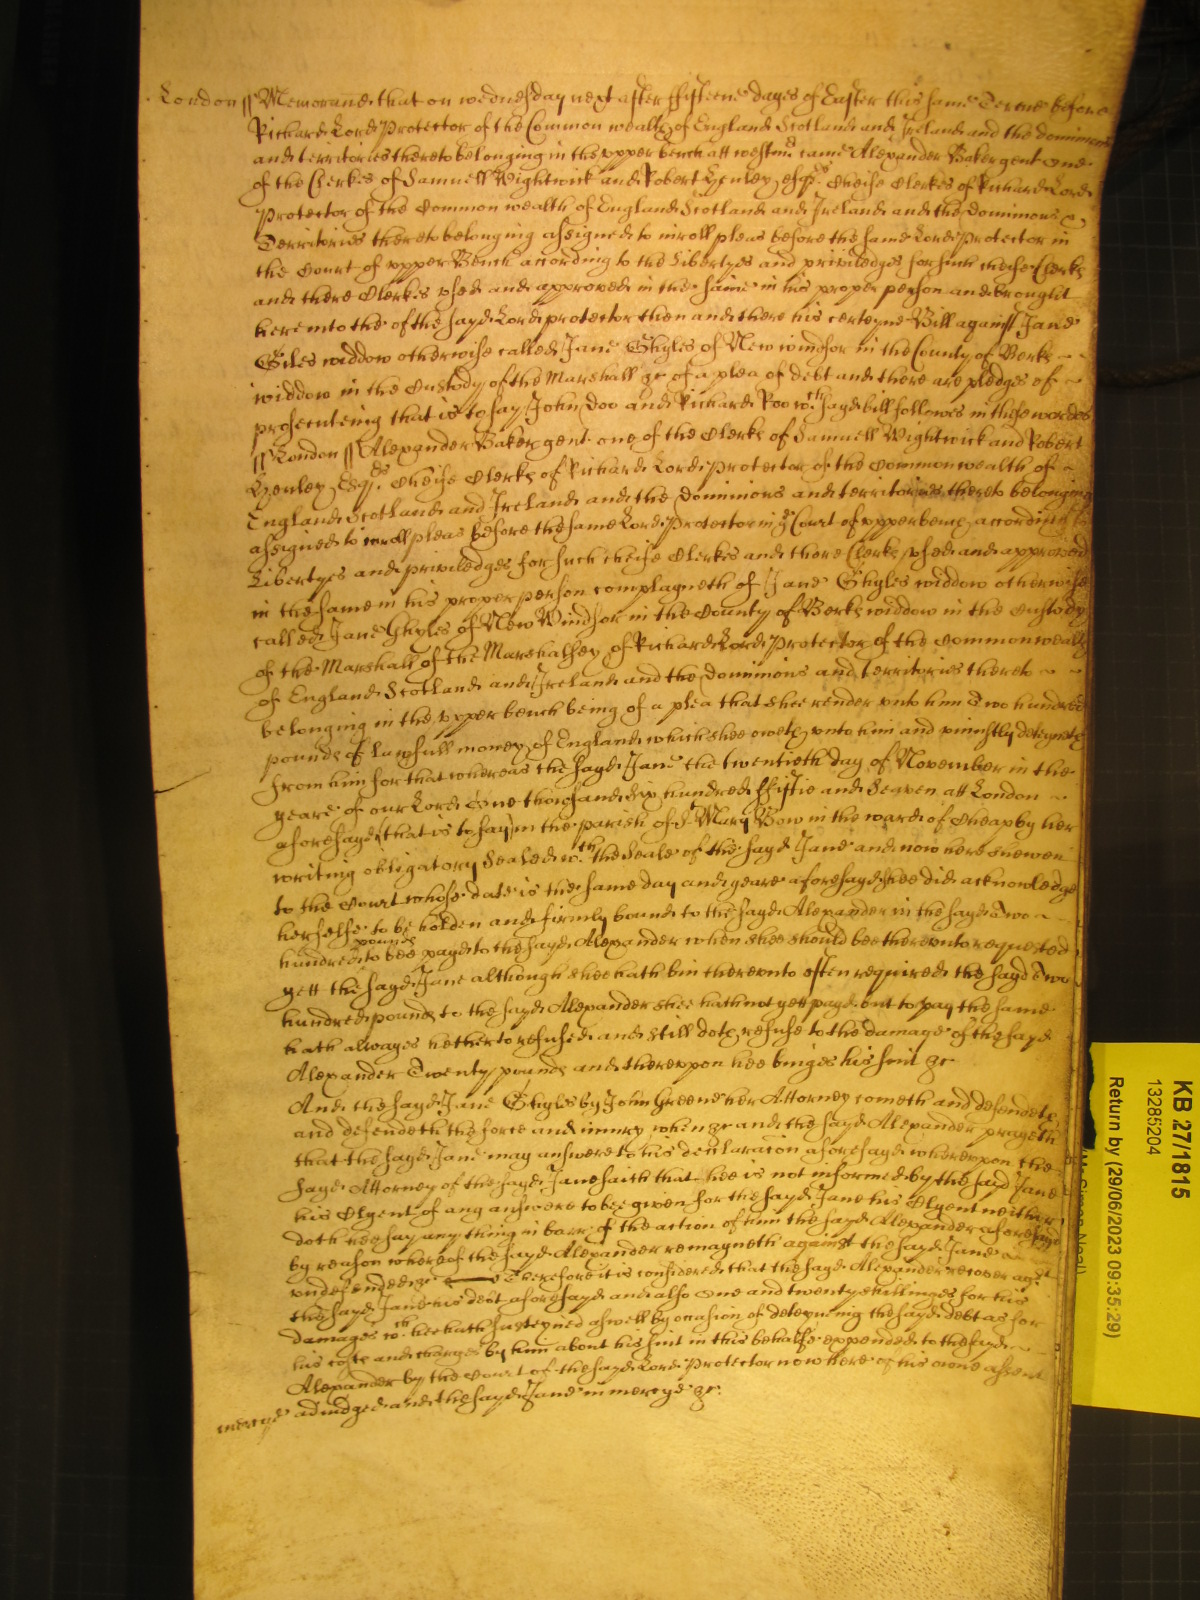 London ss Memorand that on wednesday next after fifteene dayes of Easter this same Terme before
Richard Lord Protector of the Common wealth of England Scotland and Ireland and the dominions
and territories thereto belonging in the upper bench att westmr came Alexander Baker gent one
of the Clerkes of Samuell Wightwick and Robert Henley esqrs Cheife Clerkes of Richard Lord
Protector of the Common wealth of England Scotland and Ireland and the Dominions &
Territories thereto belonging assigned to inroll pleas before the same Lord Protector in
the Court of upper Bench according to the libertyes and priviledges for such cheife Clerks
and there Clerkes used and approved in the same in his proper person and brought
here into the of the sayd Lord protector then and there his certeyne Bill against Jane
Giles widdow otherwise called Jane Ghyles of New windsor in the County of Berks
widdow in the Custody of the Marshall &c of a plea of debt and there are pledges of
prosecuteing that is to say John Doo and Richard Roo wch sayd bill followes in these wordes
ss London ss Alexander Baker gent one of the Clerks of Samuell Wightwick and Robert
Henley Esqrs Cheife Clerks of Richard Lord Protector of the Common wealth of
England Scotland and Ireland and the Dominions and territories thereto belonging
assigned to inroll pleas before the same Lord Protector in ye Court of upper bench according to
Libertyes and priviledges for such cheife Clerkes and there Clerks used and approved
in the same in his proper person complayneth of Jane Ghyles widdow otherwise
called Jane Ghyles of New Windsor in the County of Berks widdow in the Custody
of the Marshall of the Marshalsey of Richard Lord Protector of the Commonwealth
of England Scotland and Ireland and the Dominions and territories thereto
belonging in the upper bench being of a plea that shee render unto him Two hundred
pounds of lawfull money of England which shee oweth unto him and uniustly deteyneth
from him for that whereas the sayd Jane the twentieth day of November in the
yeare of our Lord One thousand six hundred Fiftie and Seaven att London
aforesayd (that is to say) in the parish of St Mary Bow in the ward of Cheap by her
writing obligatory Sealed wth the Seale of the sayd Jane and now here shewen
to the Court whose date is the same day and yeare aforesayd shee did acknowledge
herselfe to be holden and firmly bound to the sayd Alexander in the sayd Two
hundred pounds to bee payd to the sayd Alexander when shee should bee thereunto requested
yett the sayd Jane although shee hath bin thereunto often required the sayd Two
hundred pounds to the sayd Alexander shee hath not yett payd but to pay the same
hath alwayes hetherto refused and still doth refuse to the damage of the sayd
Alexander Twenty pounds and thereupon hee bringes his suit &c
And the sayd Jane Ghyles by John Greene her Attorney cometh and defendeth
and defendeth the force and iniury when &c and the sayd Alexander prayeth
that the sayd Jane may answere to his declaracon aforesayd whereupon the
sayd Attorney of the sayd Jane saith that hee is not informed by the sayd Jane
his Clyent of any answere to bee given for the sayd Jane his Clyent neither
doth hee say any thing in barr of the action of him the sayd Alexander aforesayd
by reason whereof the sayd Alexander remayneth against the sayd Jane
undefended &c Therefore it is considered that the sayd Alexander recover agt
the sayd Jane his debt aforesayd and also one and twenty shillinges for his
damages wch hee hath susteyned aswell by occasion of deteyneing the sayd debt as for
his costs and charges by him about his suit in this behalfe expended to the sayd
Alexander by the Court of the sayd Lord Protector now here of his owne assent
mercye adiudged and the sayd Jane in mercye &c
KB 27/1815
13285204
Return by (29/06/2023 09:35:29)